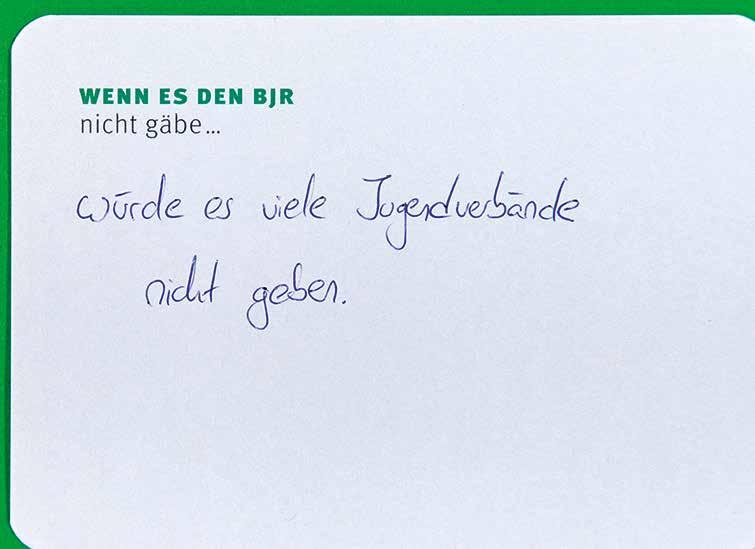 WENN ES DEN BJR
nicht gäbe...
würde es viele Jugendverbände
nicht geben.